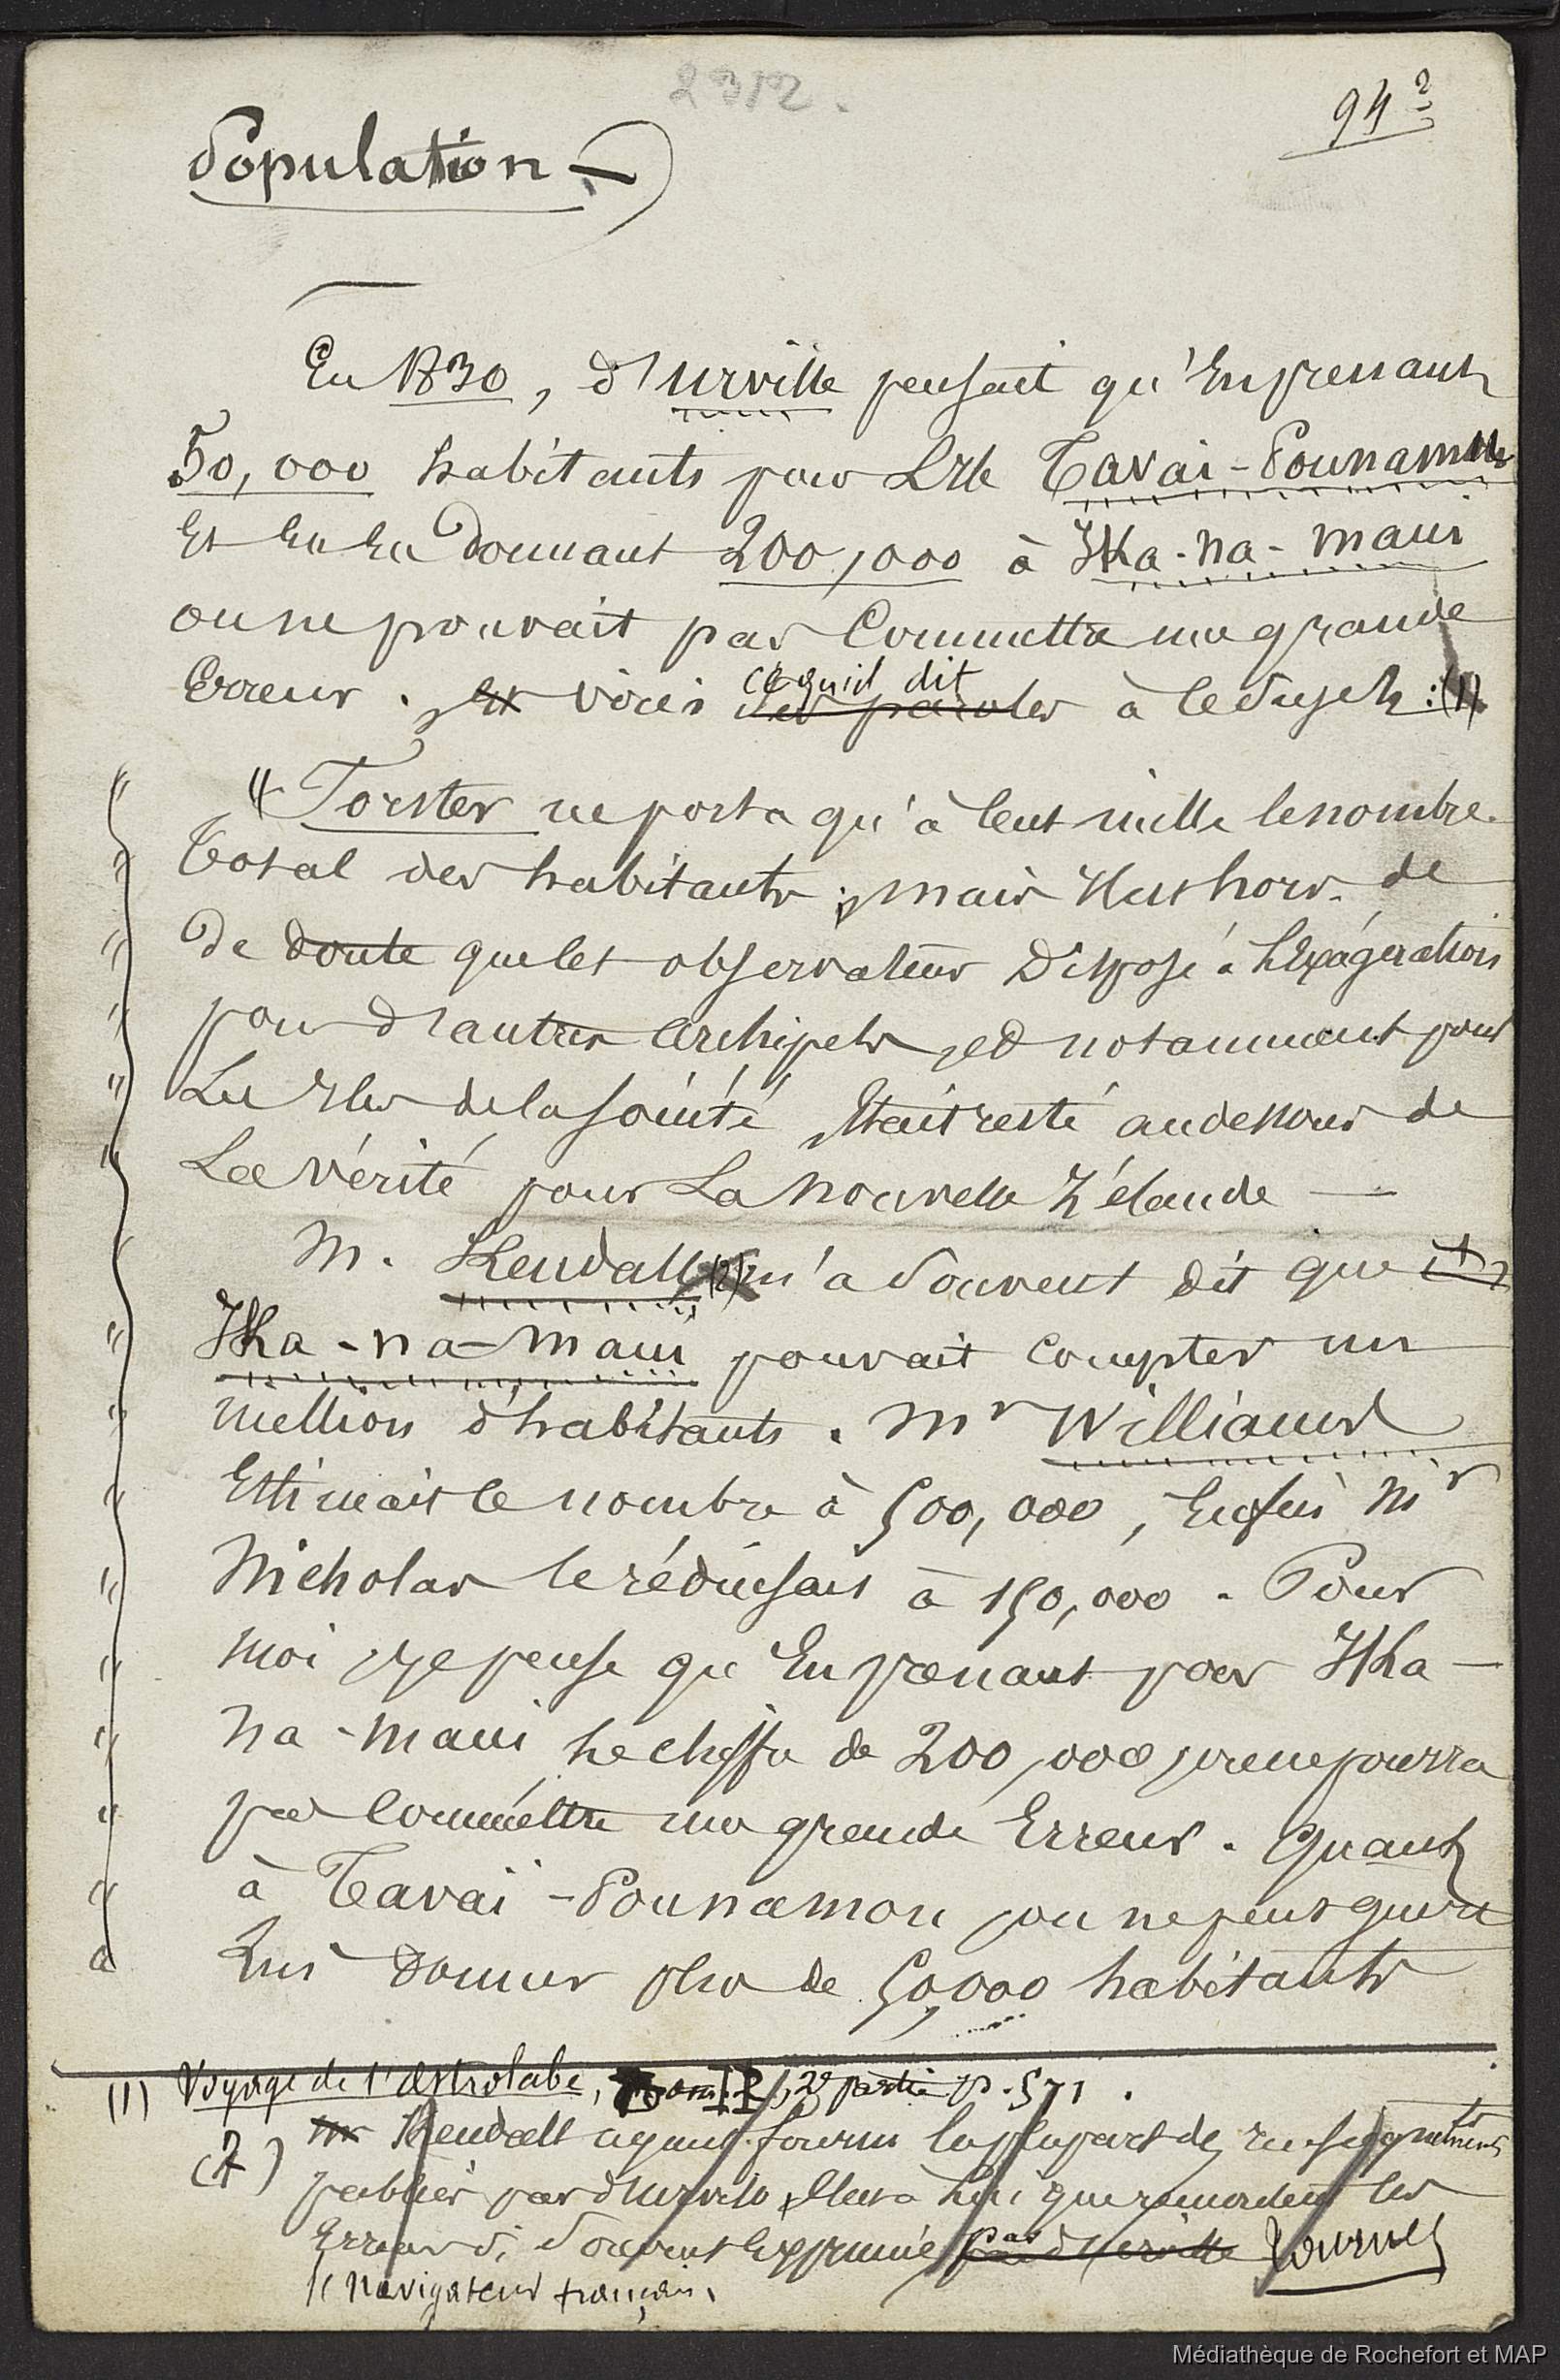 2312.
94 2
Population —
En 1830, d'Urville pensait qu'en prenant
50,000 habitants pour l'Ile Tavai-Pounamou
et en en donnant 200,000 à Ika-na-maui
on ne pouvait pas commettre une grande
erreur. et voici ce qu'il dit
ses paroles à ce sujet : (1)
" Forster ne porta qu'à cent mille le nombre
total des habitants ; mais il est hors de
de doute que cet observateur disposé à l'exagération
pour d'autres archipels, et notamment pour
les Iles de la société, était resté au dessous de
la vérité pour la nouvelle Zélande —
M. Kendall (2) m'a souvent dit que
Ika-na-maui pouvait compter un
million d'habitants. Mr Williams
estimait le nombre à 500,000, enfin Mr
Nicholas le réduisait à 150,000. Pour
moi, je pense qu'en prenant pour Ika-
na-maui le chiffre de 200,000, on ne pourra
pas commettre une grande erreur. Quant
à Tavaï-Pounamou, on ne peut guère
lui donner plus de 50,000 habitants
(1) Voyage de l'Astrolabe, Tom. II, 2e partie p. 571.
(2) Mr Kendall ayant fourni la plupart des renseignements
publiés par d'Urville, c'est à lui que remontent les
erreurs si souvent exprimées par d'Urville
le navigateur français.